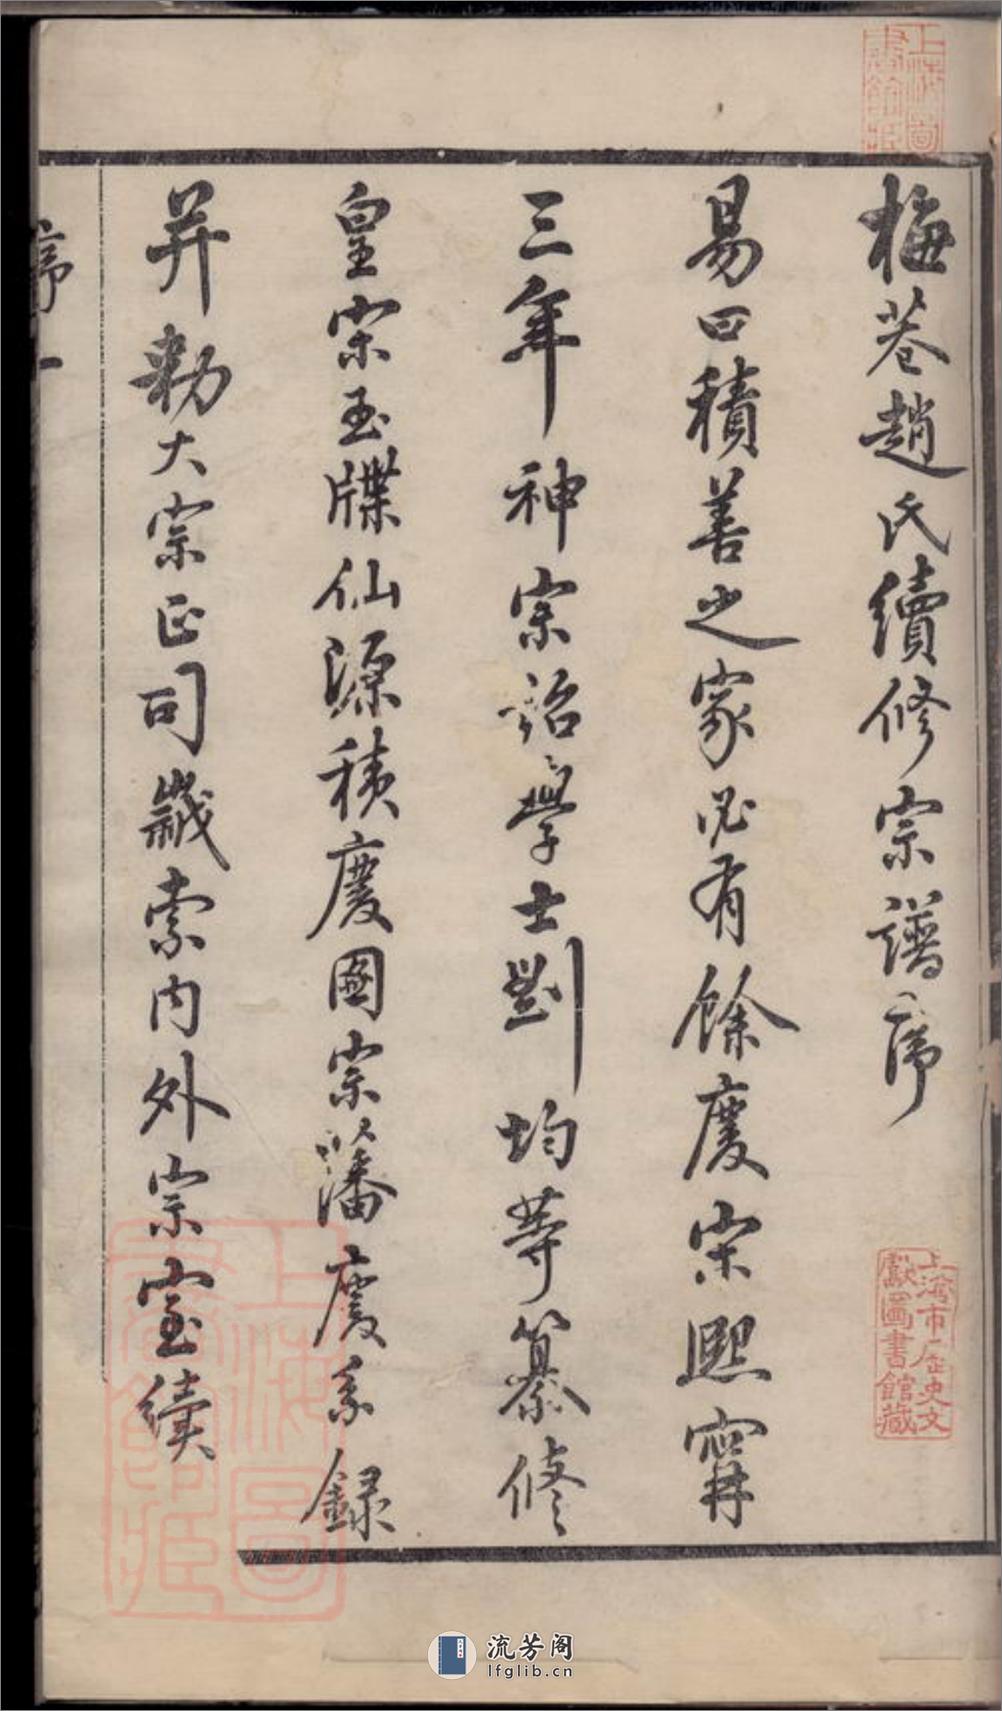 梅巷趙氏續修宗譜序
易曰積善之家必有餘慶宋熙寧
三年神宗詔學士劉均等纂修
皇宗玉牒仙源積慶圖宗藩慶系錄
并勅大宗正司歲索內外宗室續
序一
上海圖書館藏
上海市歷史文獻圖書館藏
上海圖書館藏
流芳阁
lfglib.cn